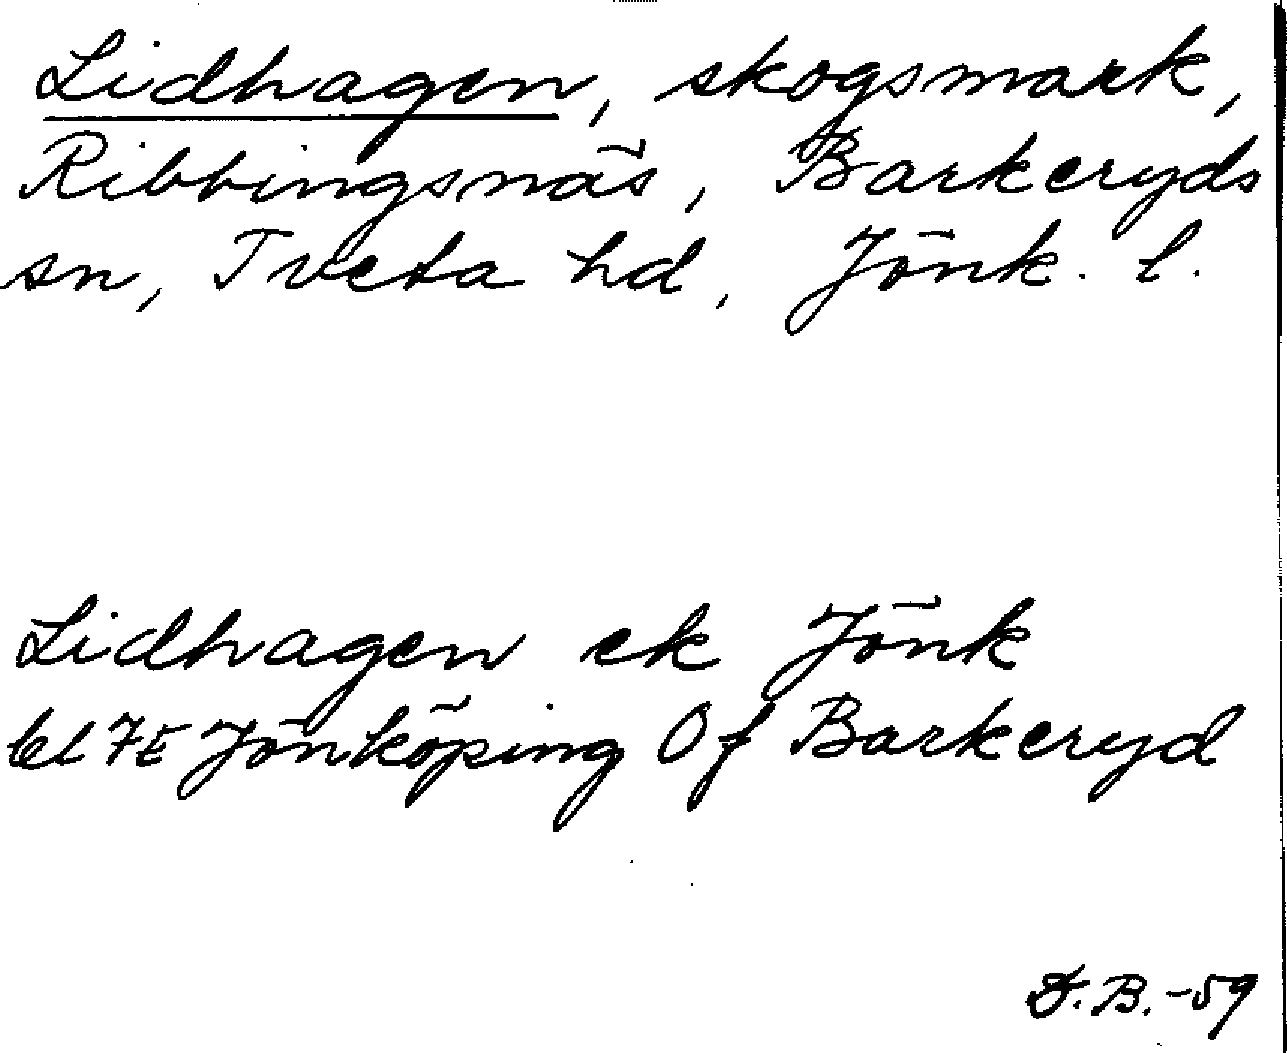 Lidhagen, skogsmark,
Ribbingsnäs, Barkeryds
sn, Tveta hd, Jönk. l.
Lidhagen ek Jönk
bl 7E Jönköping Of Barkeryd
B.-59